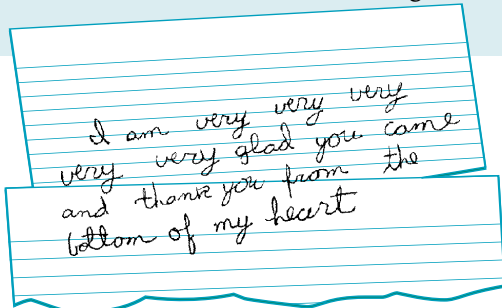 I am very very very
very very glad you came
and thank you from the
bottom of my heart